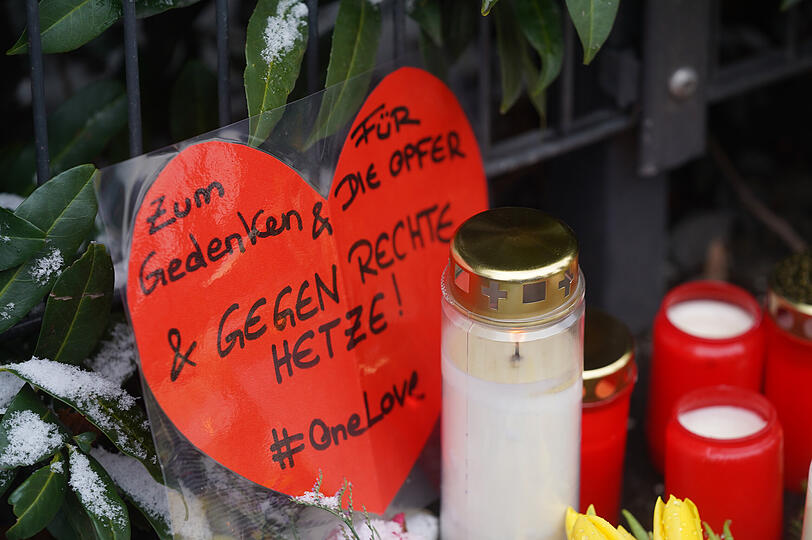 Zum
Gedenken &
FÜR
DIE OPFER
& GEGEN RECHTE
HETZE!
#OneLove